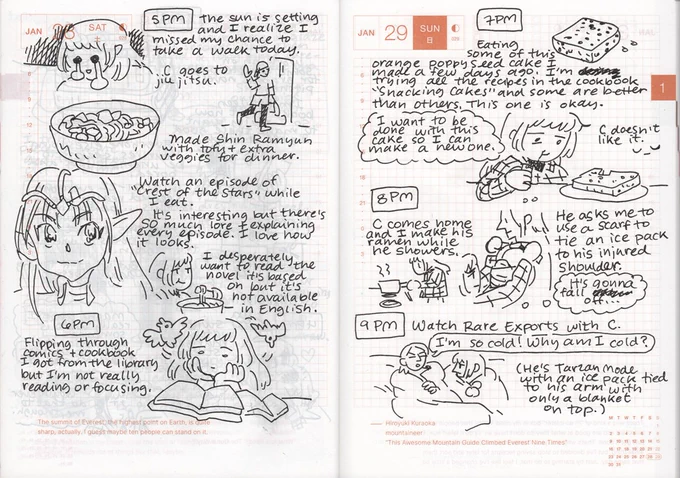 JAN 28 SAT
5PM
the sun is setting
and I realize I
missed my chance to
take a walk today.
C goes to
jiu jitsu.
Made Shin Ramyun
with tofu + extra
veggies for dinner.
Watch an episode of
"Crest of the Stars" while
I eat.
It's interesting but there's
SO much lore + explaining
every episode. I love how
it looks.
I desperately
want to read the
novel it's based
on but it's
not available
in English.
6PM
Flipping through
comics + cookbook
I got from the library
but I'm not really
reading or focusing.
The summit of Everest, the highest point on Earth, is quite
sharp, actually. I guess maybe ten people can stand on it.
JAN 29 SUN
日
7PM
Eating
some of this
orange poppyseed cake I
made a few days ago. I'm
trying all the recipes in the cookbook
"Snacking Cakes" and some are better
than others. This one is okay.
1
I want to be
done with this
cake so I can
make a new one.
C doesn't
like it.
8PM
C comes home
and I make his
ramen while
he showers.
He asks me to
use a scarf to
tie an ice pack
to his injured
shoulder.
It's gonna
fall
off...
9PM
Watch Rare Exports with C.
I'm so cold! Why am I cold?
(He's Tarzan mode
with an ice pack tied
to his arm with
only a blanket
on top.)
— Hiroyuki Kuraoka
mountaineer
"This Awesome Mountain Guide Climbed Everest Nine Times"
M T W T F S S
1
2 3 4 5 6 7 8
9 10 11 12 13 14 15
16 17 18 19 20 21 22
23 24 25 26 27 28 29
30 31